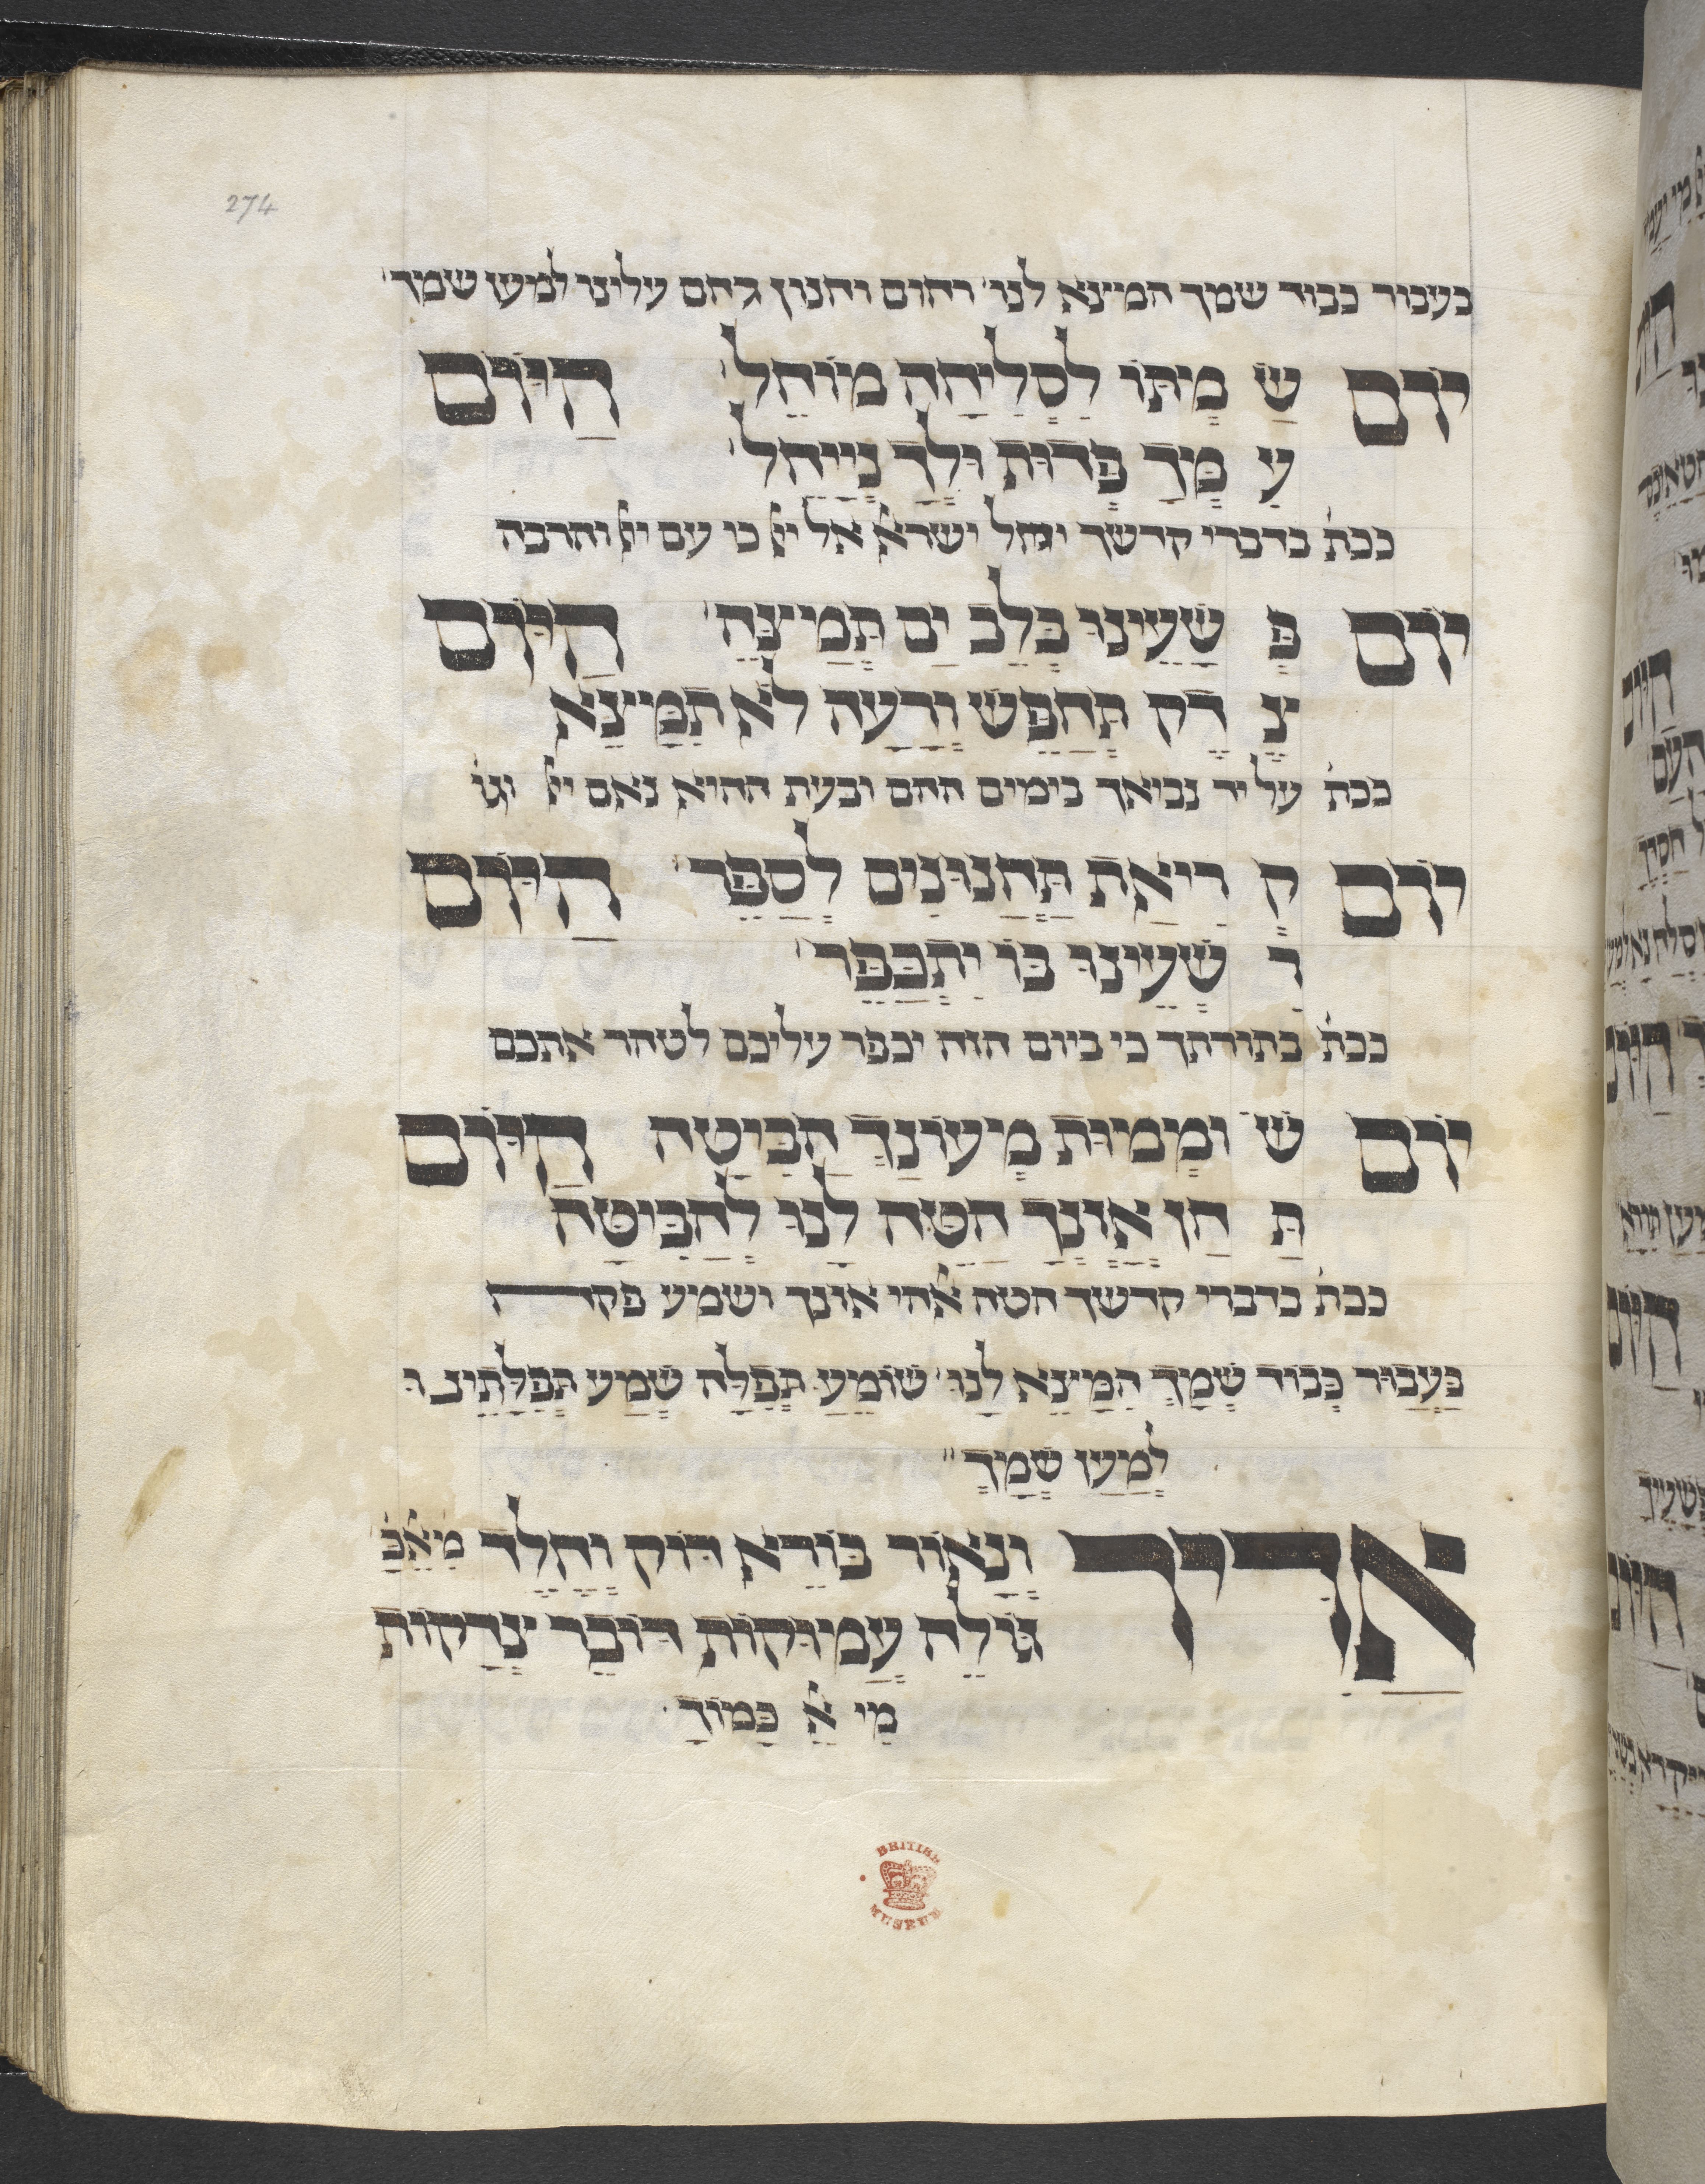 274
בעבור כבוד שמך המיצא לנו׳ רחום וחנון רחם עלינו למען שמך׳
יוֹם שַׂמְתּוֹ לִסְלִיחָה מוֹחֵל׳ הַיּוֹם
עַמְּךָ פְּדוּת וּלְךָ נְיַיחֵל׳
ככת׳ בדברי קדשך יחל ישראל אל ייי כי עם ייי והרבה
יוֹם פְּשָׁעֵינוּ בְּלֵב יַם תְּמַצֶּה׳ הַיּוֹם
צֶדֶק תְּחַפֵּשׂ וְרָעָה לֹא תִמָּצֵא
ככת׳ על יד נביאך בימים ההם ובעת ההיא נאם ייי וגו׳
יוֹם קְרִיאַת תַּחֲנוּנִים לְסַפֵּר׳ הַיּוֹם
רִשְׁעֵינוּ בּוֹ יִתְכַּפֵּר׳
ככת׳ בתורתך כי ביום הזה יכפר עליכם לטהר אתכם
יוֹם שׁוֹמְמוּת מְעוֹנְךָ הַבִּיטָה הַיּוֹם
תַּחַן אָזְנְךָ הַטֵּה לָנוּ לְהַבִּיטָה
ככת׳ בדברי קדשך הטה אלהי אזנך ושמע פקח
בַּעֲבוּר כְּבוֹד שִׁמְךָ הִמָּצֵא לָנוּ׳ שׁוֹמֵעַ תְּפִלָּה שְׁמַע תְּפִלָּתֵינוּ
לְמַעַן שְׁמֶךָ׳׳
אַדִּיר וְנָאוֹר בּוֹרֵא דּוֹק וְחֶלֶד מִ׳אֵ׳כָּ׳
גּוֹלֶה עֲמוּקוֹת דּוֹבֵר צְדָקוֹת
מִי אֵל כָּמוֹךָ
BRITISH
MUSEUM